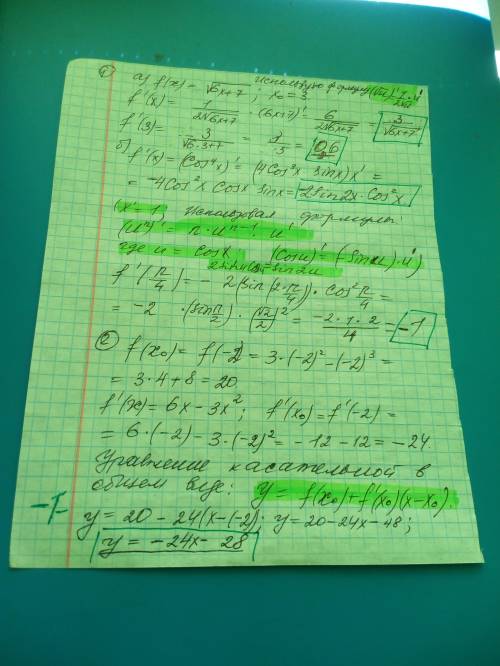 ① а) f(x) = √6x+7 ; x₀ = 3 Использую формулу (√u)' = 1·u' / 2√u
f'(x) = 1/(2√6x+7) · (6x+7)' = 6/(2√6x+7) = 3/√6x+7
f'(3) = 3/√6·3+7 = 3/5 = 0,6
б) f'(x) = (Cos⁴x)' = (4Cos³x · sinx)x' =
= -4Cos²x Cosx sinx = -2Sin2x · Cos²x
(x' = 1, используя формулы
(uⁿ)' = n · uⁿ⁻¹ · u'
где u = cosx (Cosu)' = (-sinu)·u')
f'(π/4) = -2(sin(2·π/4)) · cos²π/4 =
= -2 · (sinπ/2) · (√2/2)² = -2·1·2/4 = -1
② f(x₀) = f(-2) = 3·(-2)² - (-2)³ =
= 3·4+8 = 20.
f'(x) = 6x - 3x² ; f'(x₀) = f'(-2) =
= 6·(-2) - 3·(-2)² = -12 - 12 = -24.
Уравнение касательной в
общем виде: y = f(x₀) + f'(x₀)(x-x₀).
y = 20 - 24(x-(-2)); y = 20-24x-48;
y = -24x - 28
-1-